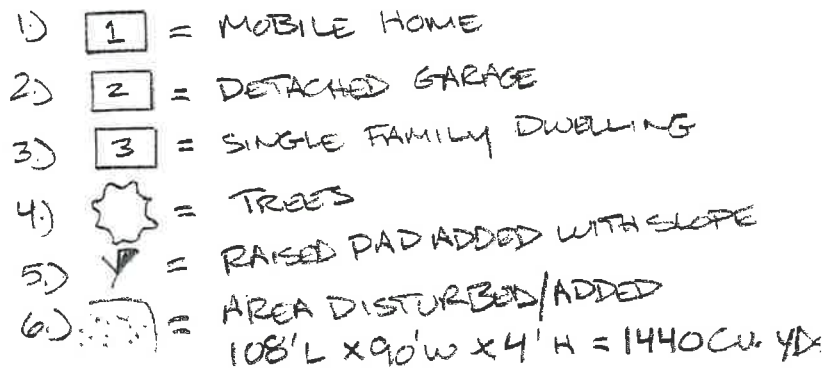 1.) 1 = MOBILE HOME
2.) 2 = DETACHED GARAGE
3.) 3 = SINGLE FAMILY DWELLING
4.) = TREES
5.) = RAISED PAD ADDED WITH SLOPE
6.) = AREA DISTURBED/ADDED
108'L x 90'W x 4'H = 1440 CU. YDS